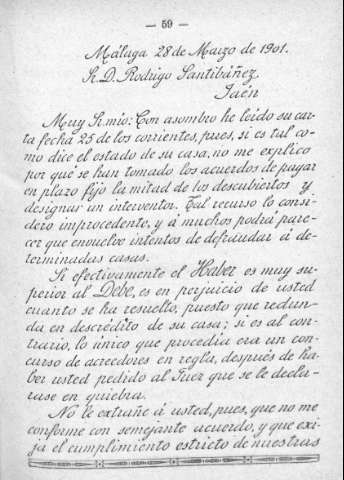 — 59 —
Málaga 28 de Marzo de 1901.
Sr. D. Rodrigo Santibáñez.
Jaén
Muy Sr. mío: Con asombro he leído su car-
ta fecha 25 de los corrientes, pues, si es tal co-
mo dice el estado de su casa, no me explico
por qué se han tomado los acuerdos de pagar
en plazo fijo la mitad de los descubiertos y
designar un interventor. Tal recurso lo consi-
dero improcedente, y á muchos podrá pare-
cer que envuelve intentos de defraudar á de-
terminadas casas.
Si efectivamente el Haber es muy su-
perior al Debe, es en perjuicio de usted
cuanto se ha resuelto, puesto que redun-
da en descrédito de su casa; si es al con-
trario, lo único que procedía era un con-
curso de acreedores en regla, después de ha-
ber usted pedido al Juez que se le decla-
rase en quiebra.
No le extrañe á usted, pues, que no me
conforme con semejante acuerdo, y que exi-
ja el cumplimiento estricto de nuestras